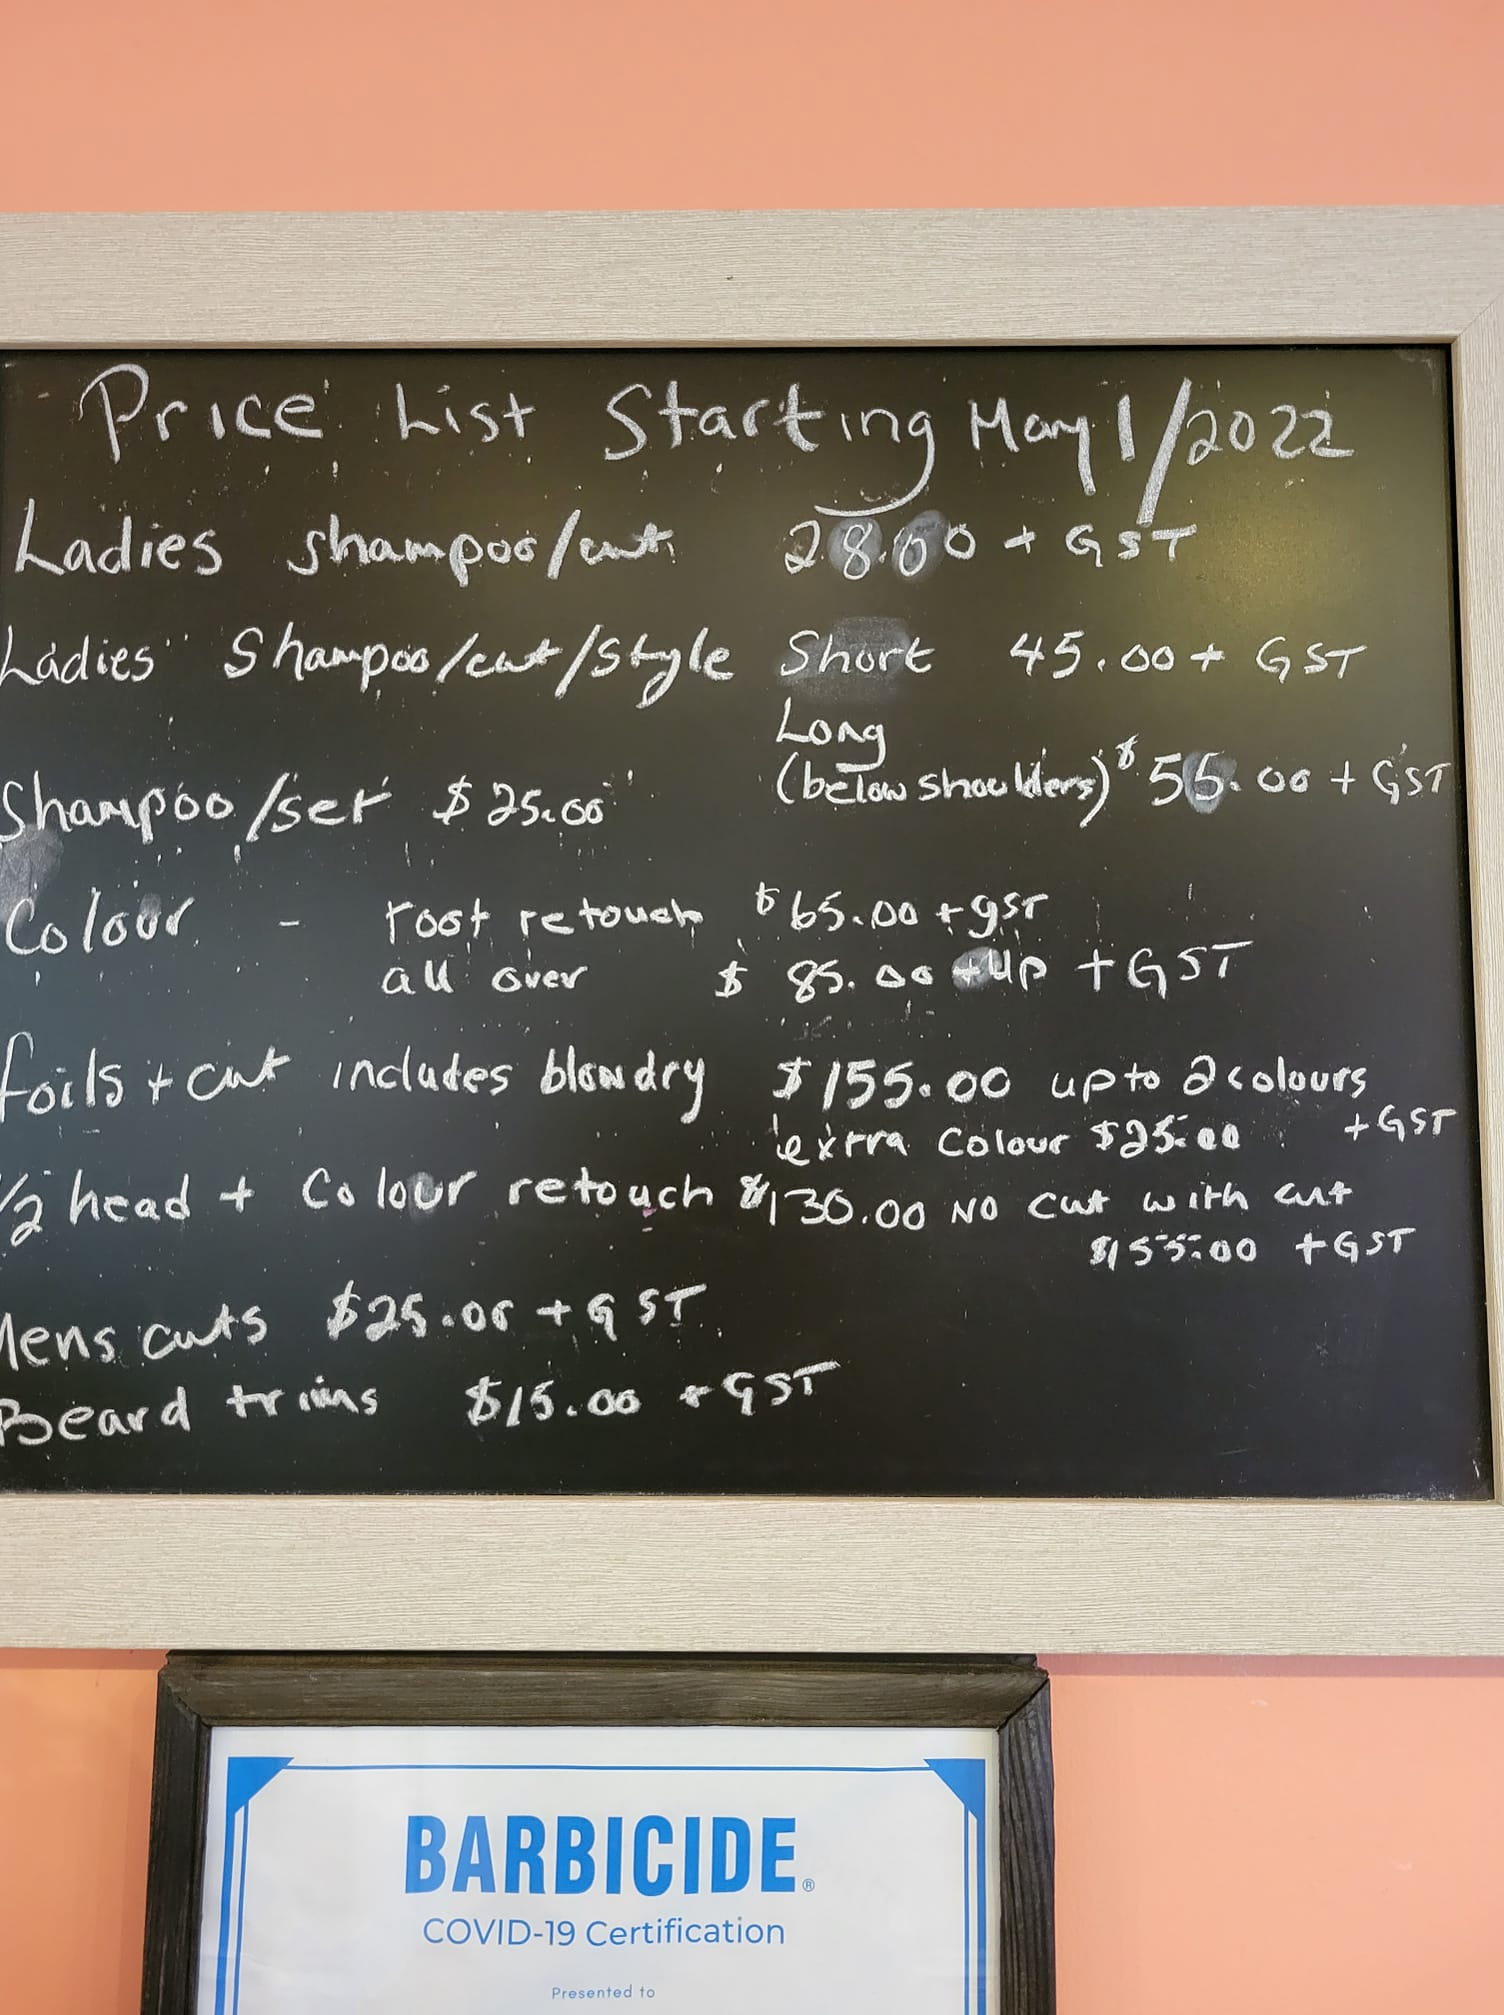 Price List Starting May 1/2022
Ladies shampoo/cut 28.00 + GST
Ladies Shampoo/cut/style Short 45.00 + GST
Long
(below shoulders) $55.00 + GST
Shampoo/set $25.00
Colour - root retouch $65.00 + gST
all over $ 85.00 + up + GST
foils + cut includes blowdry $155.00 up to 2 colours
extra Colour $25.00 + GST
1/2 head + Colour retouch $130.00 NO cut with cut
$155.00 + GST
Mens cuts $25.00 + GST
Beard trims $15.00 + GST
BARBICIDE®
COVID-19 Certification
Presented to